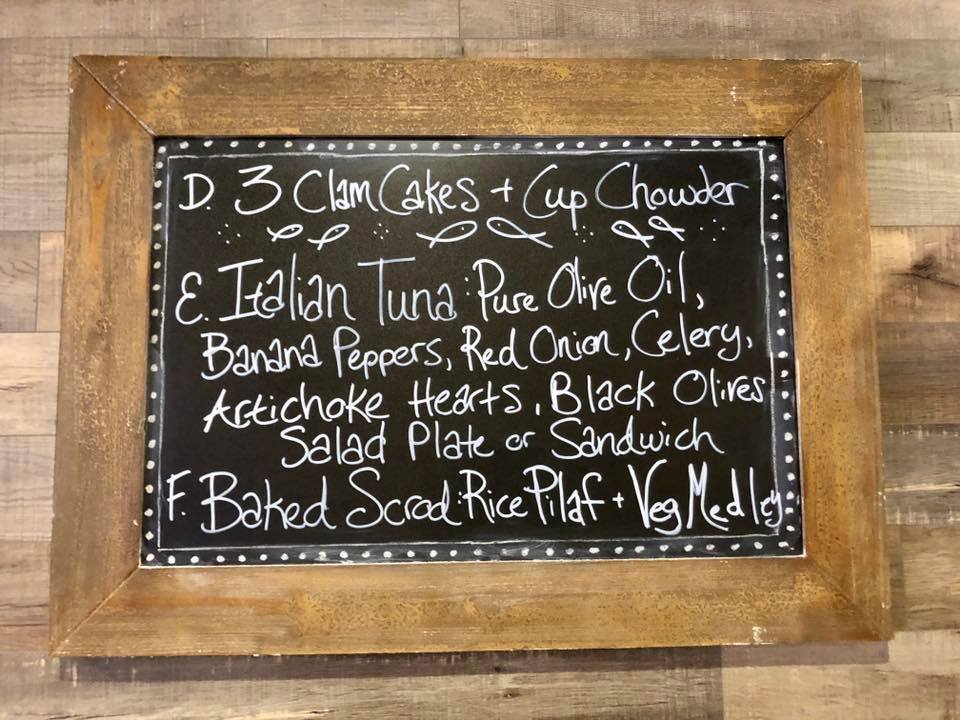 D. 3 Clam Cakes + Cup Chowder
E. Italian Tuna: Pure Olive Oil,
Banana Peppers, Red Onion, Celery,
Artichoke Hearts, Black Olives
Salad Plate or Sandwich
F. Baked Scrod: Rice Pilaf + Veg Medley